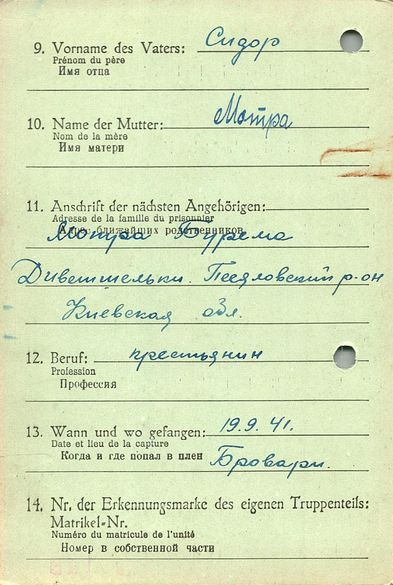 9. Vorname des Vaters: Сидор
Prénom du père
Имя отца
10. Name der Mutter: Мотра
Nom de la mère
Имя матери
11. Anschrift der nächsten Angehörigen:
Adresse de la famille du prisonnier
Адрес ближайших родственников
Мотра Бурема
р-он
Киевская обл.
12. Beruf: крестьянин
Profession
Профессия
13. Wann und wo gefangen: 19.9.41.
Date et lieu de la capture
Когда и где попал в плен Бровари.
14. Nr. der Erkennungsmarke des eigenen Truppenteils:
Matrikel-Nr.
Numéro du matricule de l'unité
Номер в собственной части